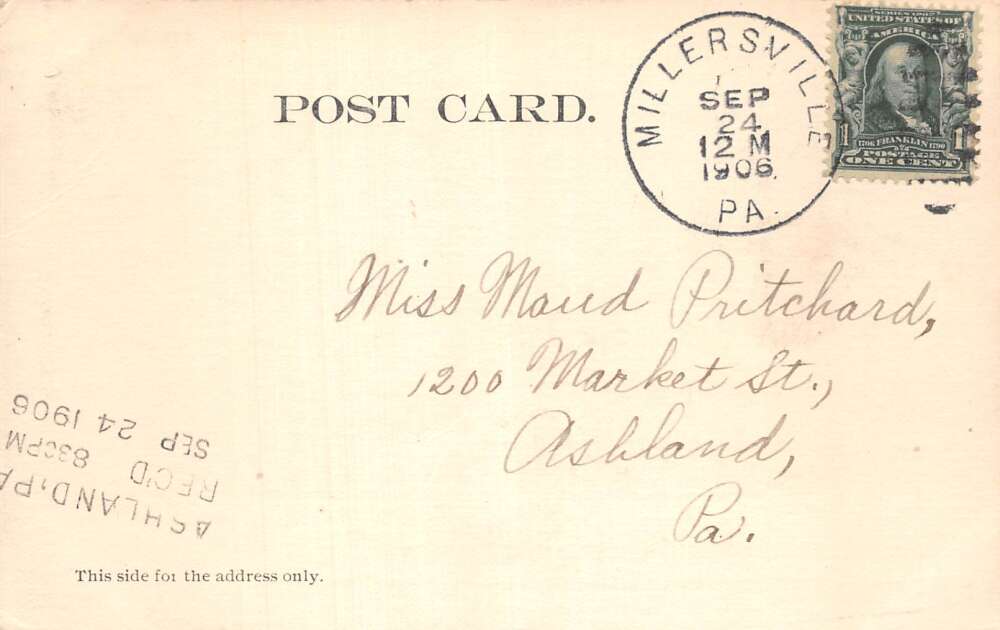 POST CARD.
MILLERSVILLE
SEP
24
12 M
1906
PA.
SERIES 1902
UNITED STATES OF
AMERICA
1706 FRANKLIN 1790
1 1
POSTAGE
ONE CENT
Miss Maud Pritchard,
1200 Market St.,
Ashland,
Pa.
ASHLAND, PA
REC'D 830PM
SEP 24 1906
This side for the address only.